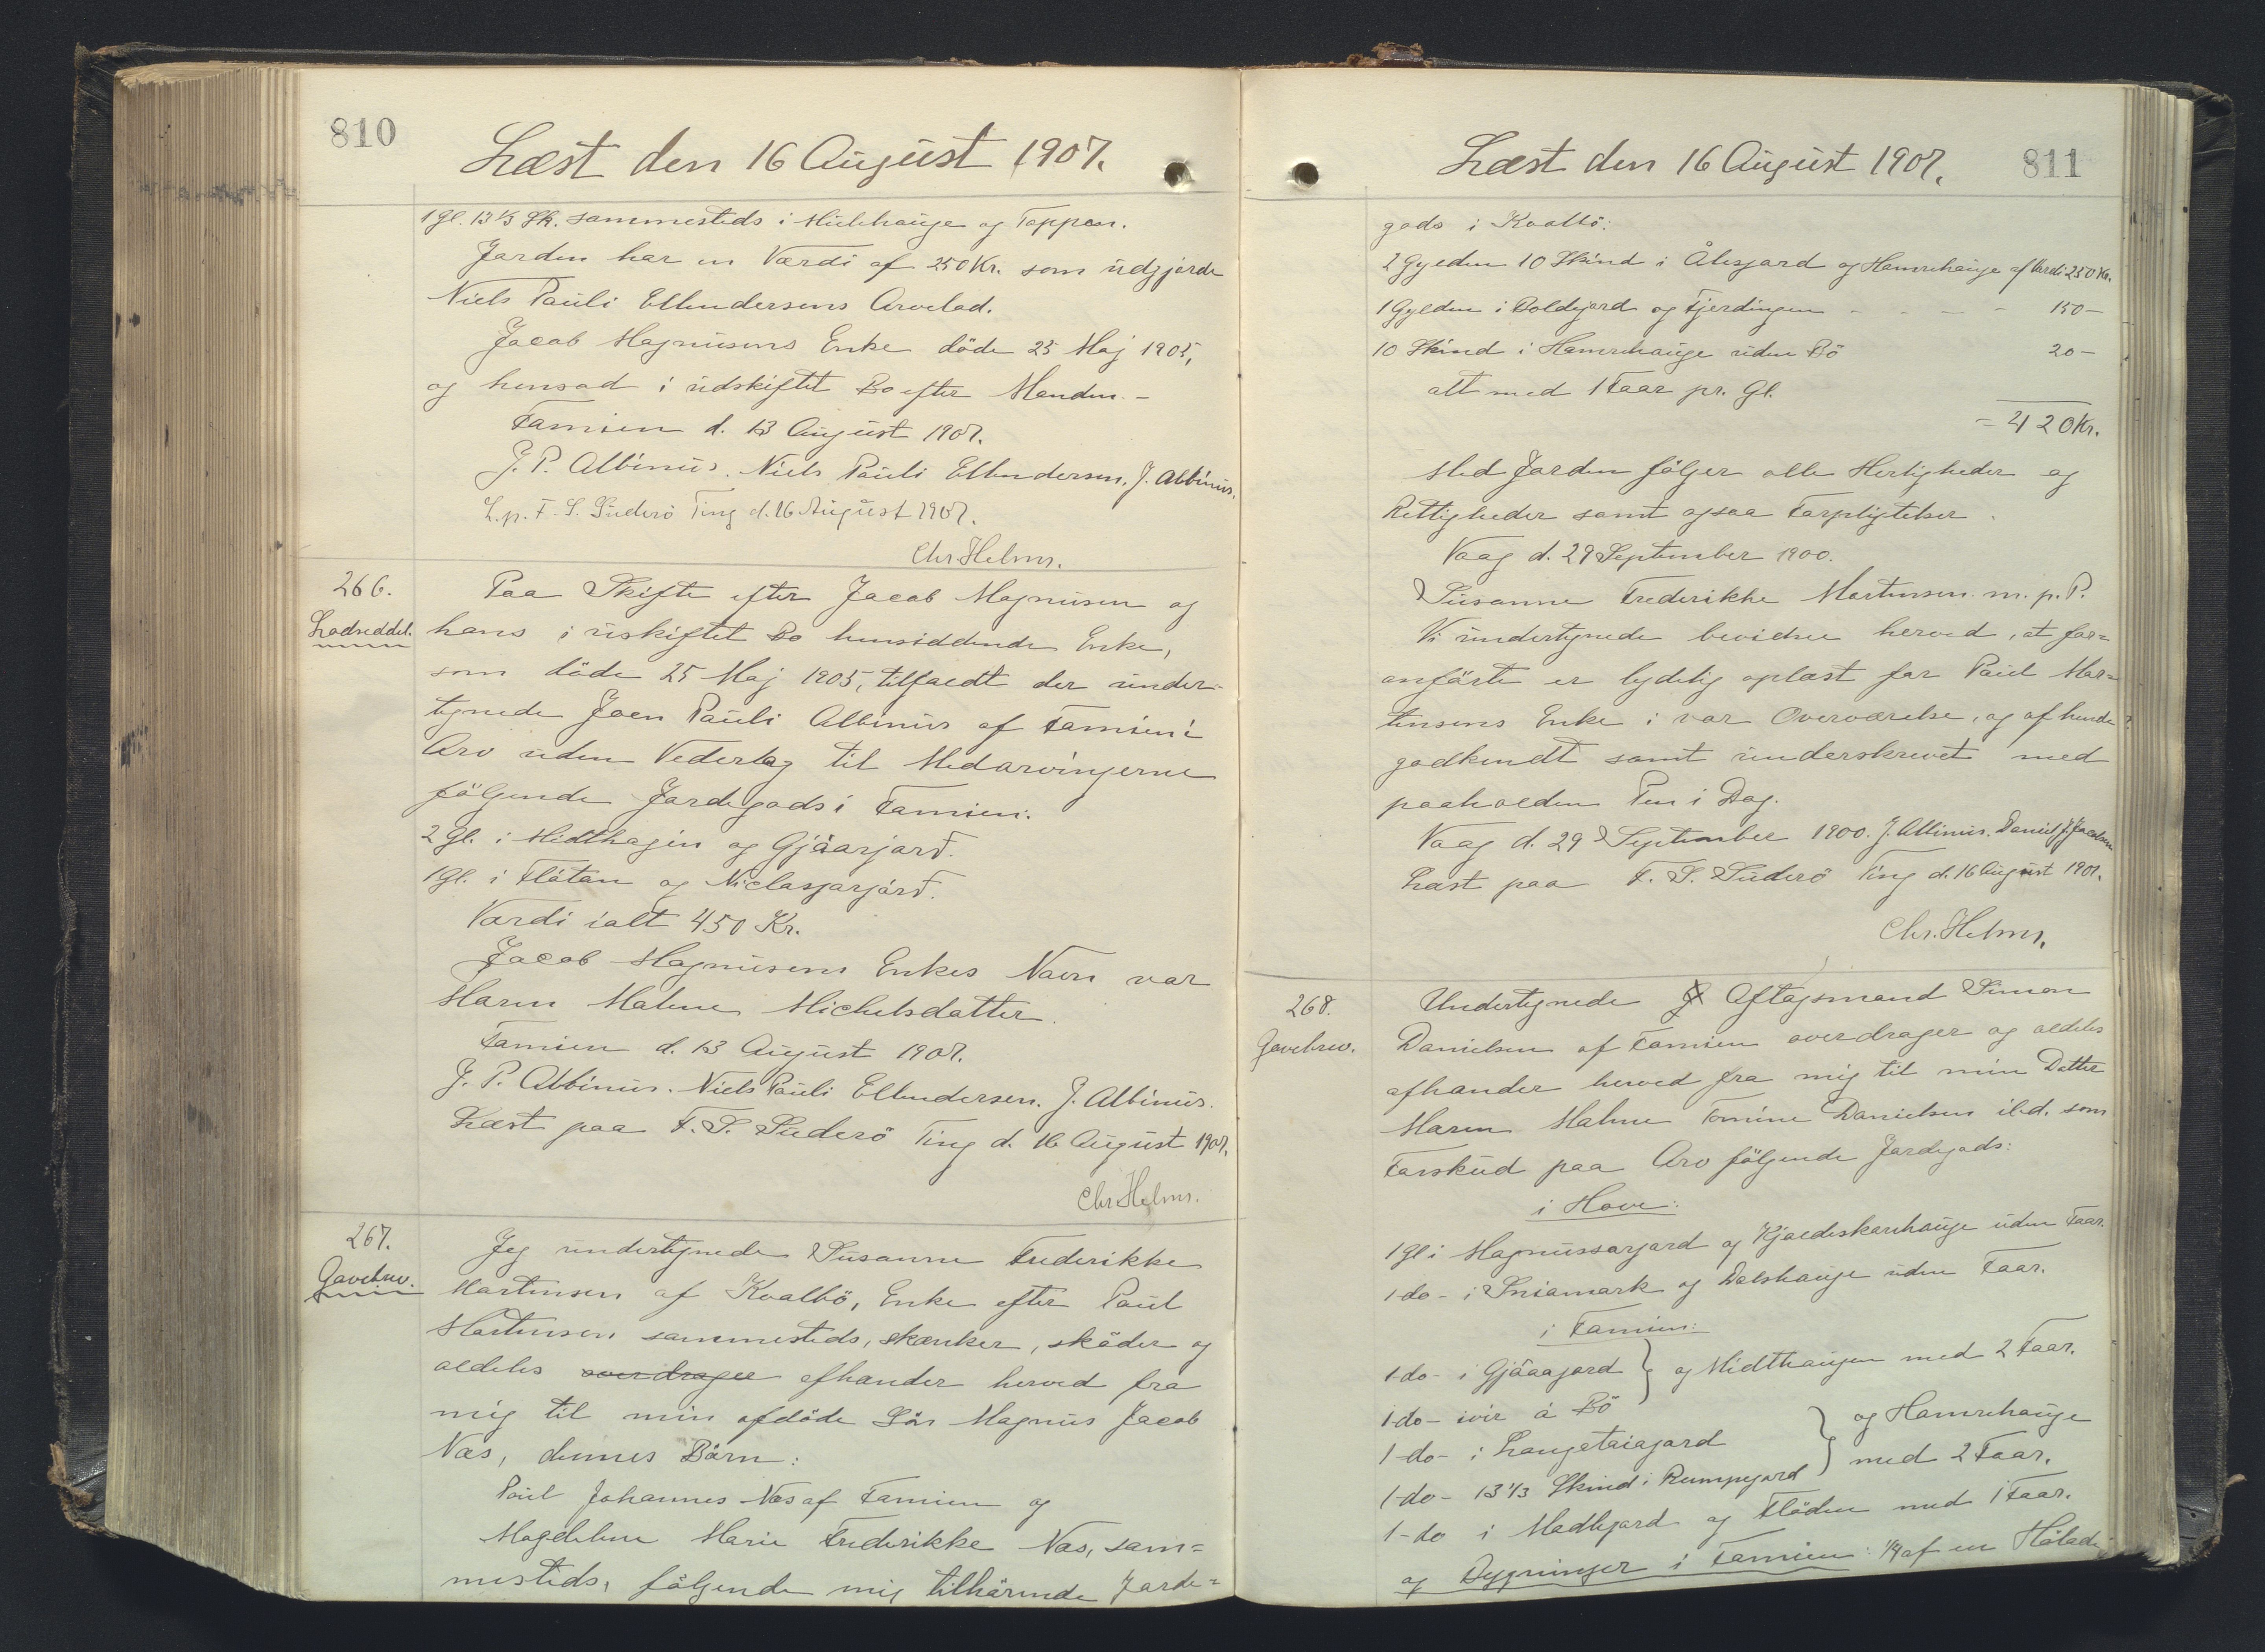 810
Læst den 16 August 1907.
1 gl. 13 1/3 Sk. sammesteds i Hulehauge og Toppen.
Jorden har en Værdi af 250 Kr. som udgjorde
Niels Pauli Ellendersens Arvelod.
Jacob Magnusens Enke döde 25 Maj 1905,
og hensad i udskiftet Bo efter Manden. -
Famien d. 13 August 1907.
J. P. Albinus. Niels Pauli Ellendersen. J. Albinus.
L. p. F. S. Suderö Ting d. 16 August 1907.
Chr. Helms.
266.
Lodseddel.
Paa Skifte efter Jacob Magnusen og
hans i uskiftet Bo hensiddende Enke,
som döde 25 Maj 1905, tilfaldt der under-
tegnede Joen Pauli Albinus af Famien i
Arv uden Vederlag til Medarvingerne
följende Jordegods i Famien:
2 gl. i Midthagin og Gjáarjarð.
1 gl. i Flátan og Niclasjarjárð.
Værdi ialt 450 Kr.
Jacob Magnusens Enkes Navn var
Maren Malene Michelsdatter.
Famien d. 13 August 1907.
J. P. Albinus. Niels Pauli Ellendersen. J. Albinus.
Læst paa F. S. Suderö Ting d. 16 August 1907.
Chr. Helms.
267.
Gavebrev.
Jeg undertegnede Susanne Frederikke
Martensen af Kvalbö, Enke efter Paul
Martensen sammesteds, skænker, sköder og
aldeles overdrager afhænder herved fra
mig til min afdöde Sön Magnus Jacob
Næs, dennes Börn:
Poul Johannes Næs af Famien og
Magdelene Marie Frederikke Næs, sam=
mesteds, följende mig tilhörende Jorde=
Læst den 16 August 1907.
811
gods i Kvalbö:
2 Gylden 10 Skind i Ålesgard og Hamrehauge af Værdi 250 Kr.
1 Gylden i Boldgard og Fjerdingen - - - - 150 -
10 Skind i Hamrehauge uden Bö 20 -
alt med 1 Faar pr. Gl.
= 420 Kr.
Med Jorden fölger alle Herligheder og
Rettigheder samt ogsaa Forpligtelser.
Vaag d. 29 September 1900.
Susanne Frederikke Martensen m. p. P.
Vi undertegnede bevidne herved, at for=
anförte er lydelig oplæst for Paul Mar=
tensens Enke i vor Overværelse, og af hende
godkendt samt underskrevet med
paaholden Pen i Dag.
Vaag d. 29 September 1900. J. Albinus. Daniel J. Jacobsen
Læst paa F. S. Suderö Ting d. 16 August 1907.
Chr. Helms.
268.
Gavebrev.
Undertegnede Aftagsmand Simon
Danielsen af Famien overdrager og aldeles
afhænder herved fra mig til min Datter
Maren Malene Tomine Danielsen ibd. som
Forskud paa Arv fölgende Jordegods:
i Hove:
1 gl i Magnussarjard og Kjaldeskarhauge uden Faar.
1 do - i Sniamark og Dalshauge uden Faar.
i Famien:
1 do - i Gjáaajard } og Midthaugen med 2 Faar.
1 do - ivir á Bö
1 do - i Langetaiajard } og Hamrehauge
1 do - 13 1/3 Skind i Rumpegard } med 2 Faar.
1 - do i Madlegard og Flöden med 1 Faar.
og Bygninger i Famien: 1/4 af en Hölade